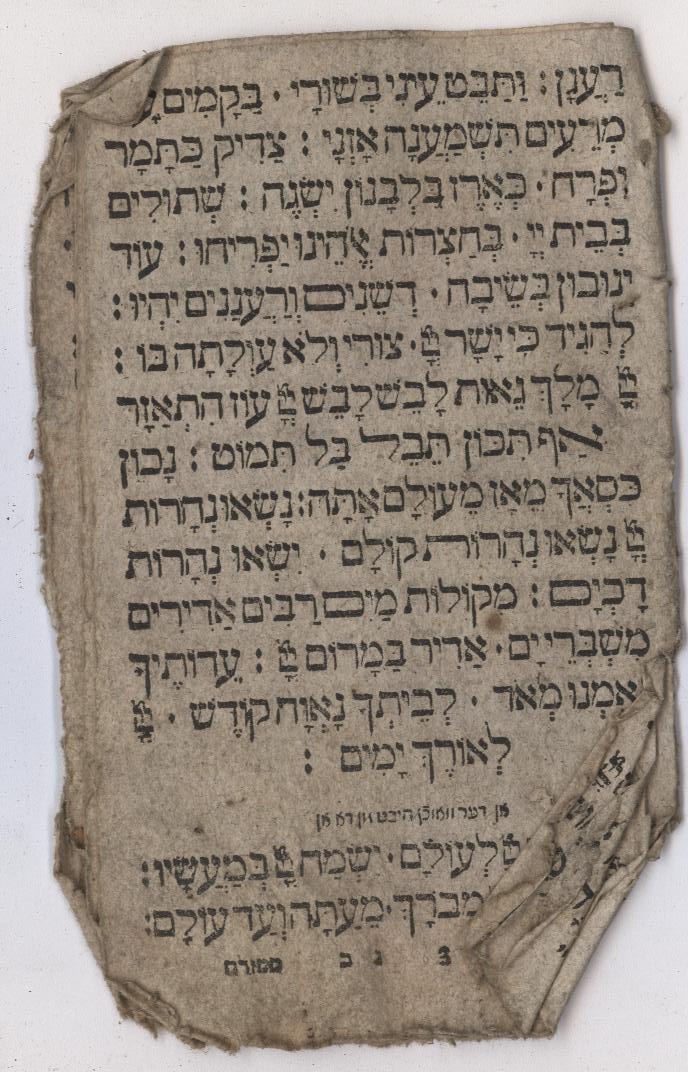 רַעֲנָן : וַתַּבֵּט עֵינִי בְּשׁוּרָי · בַּקָּמִים
מְרֵעִים תִּשְׁמַעֲנָה אָזְנָי : צַדִּיק כַּתָּמָר
יִפְרָח · כְּאֶרֶז בַּלְּבָנוֹן יִשְׂגֶּה : שְׁתוּלִים
בְּבֵית יְיָ · בְּחַצְרוֹת אֱהֵינוּ יַפְרִיחוּ : עוֹד
יְנוּבוּן בְּשֵׂיבָה · דְּשֵׁנִים וְרַעֲנַנִּים יִהְיוּ :
לְהַגִּיד כִּי יָשָׁר יְיָ · צוּרִי וְלֹא עַוְלָתָה בּוֹ :
יְיָ מָלָךְ גֵּאוּת לָבֵשׁ לָבֵשׁ יְיָ עוֹז הִתְאַזָּר
אַף תִּכּוֹן תֵּבֵל בַּל תִּמּוֹט : נָכוֹן
כִּסְאֲךָ מֵאָז מֵעוֹלָם אָתָּה : נָשְׂאוּ נְהָרוֹת
יְיָ נָשְׂאוּ נְהָרוֹת קוֹלָם · יִשְׂאוּ נְהָרוֹת
דָּכְיָם : מִקּוֹלוֹת מַיִם רַבִּים אַדִּירִים
מִשְׁבְּרֵי יָם · אַדִּיר בַּמָּרוֹם יְיָ : עֵדוֹתֶיךָ
נֶאֶמְנוּ מְאֹד · לְבֵיתְךָ נָאֲוָה קוֹדֶשׁ · יְיָ
לְאוֹרֶךְ יָמִים :
אן דער וואוכן היבט מן דא אן
לְעוֹלָם · יִשְׂמַח יְיָ בְּמַעֲשָׂיו :
מְבֹרָךְ · מֵעַתָּה וְעַד עוֹלָם :
3 ג ב